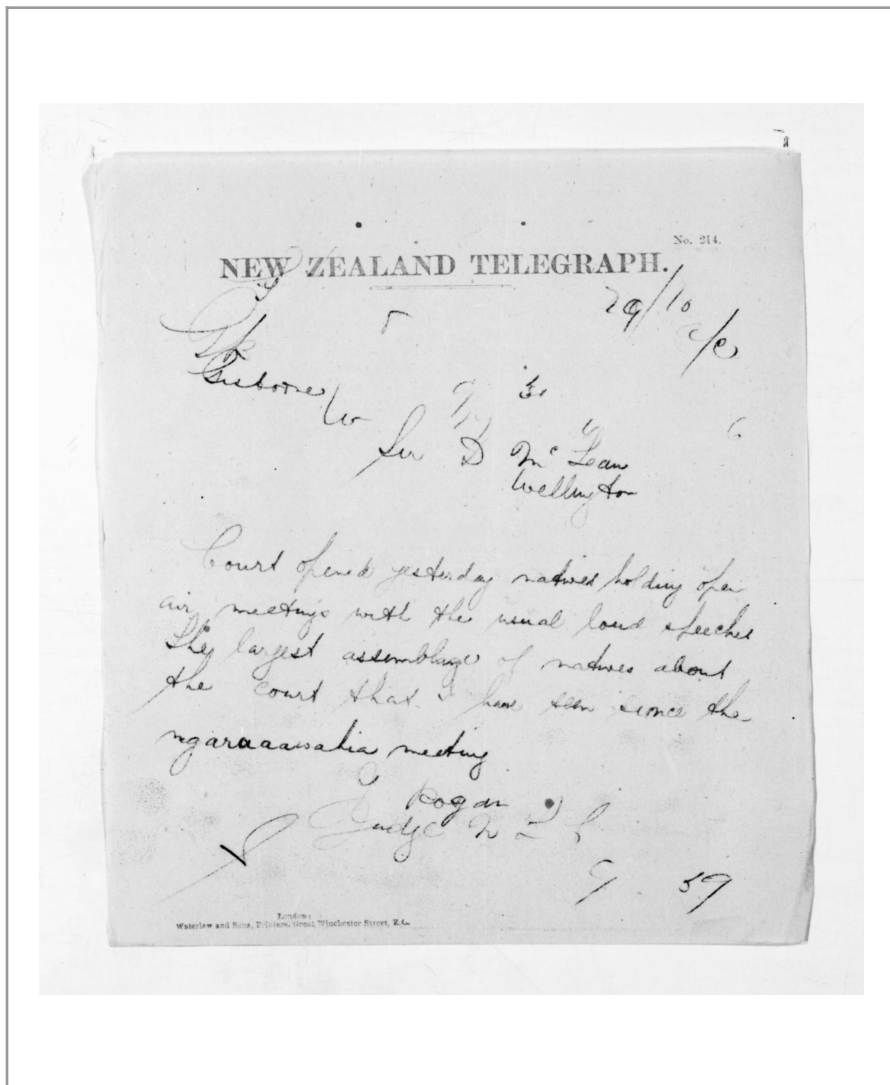 No. 214.
NEW ZEALAND TELEGRAPH.
29/10
Gisborne
Sir D McLean
Wellington
Court opened yesterday natives holding open
air meetings with the usual loud speeches
The largest assemblage of natives about
the court that I have seen since the
ngaruaawahia meeting
Rogan
Judge N L C
9 59
London:
Waterlow and Sons, Printers, Great Winchester Street, E.C.